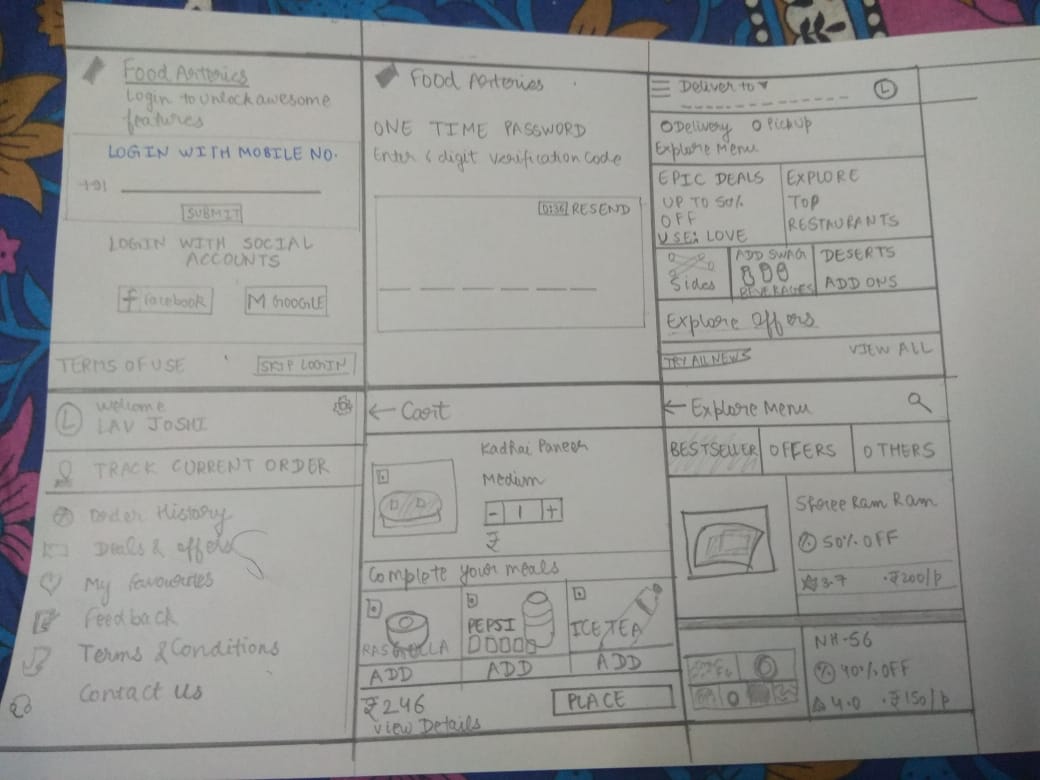 Food Arteries
Login to unlock awesome
features
LOGIN WITH MOBILE NO.
+91
SUBMIT
LOGIN WITH SOCIAL
ACCOUNTS
f facebook
M GOOGLE
TERMS OF USE
SKIP LOGIN
Food Arteries
ONE TIME PASSWORD
Enter 6 digit verification Code
0:36 RESEND
Deliver to
L
Delivery
PickUp
Explore Menu
EPIC DEALS
UP TO 50%
OFF
USE: LOVE
EXPLORE
TOP
RESTAURANTS
Sides
ADD SWAG
BEVERAGES
DESERTS
ADD ONS
Explore offers
TRY ALL NEWS
VIEW ALL
L
Welcome
LAV JOSHI
TRACK CURRENT ORDER
Order History
Deals & offers
My favourites
Feedback
Terms & Conditions
Contact Us
← Cart
Kadhai Paneer
Medium
- 1 +
₹
Complete your meals
RASGULLA
ADD
PEPSI
ADD
ICE TEA
ADD
₹246
View Details
PLACE
← Explore Menu
BESTSELLER
OFFERS
OTHERS
Shree Ram Ram
50% OFF
3.7 · ₹200/p
NH-56
40% OFF
4.0 · ₹150/p